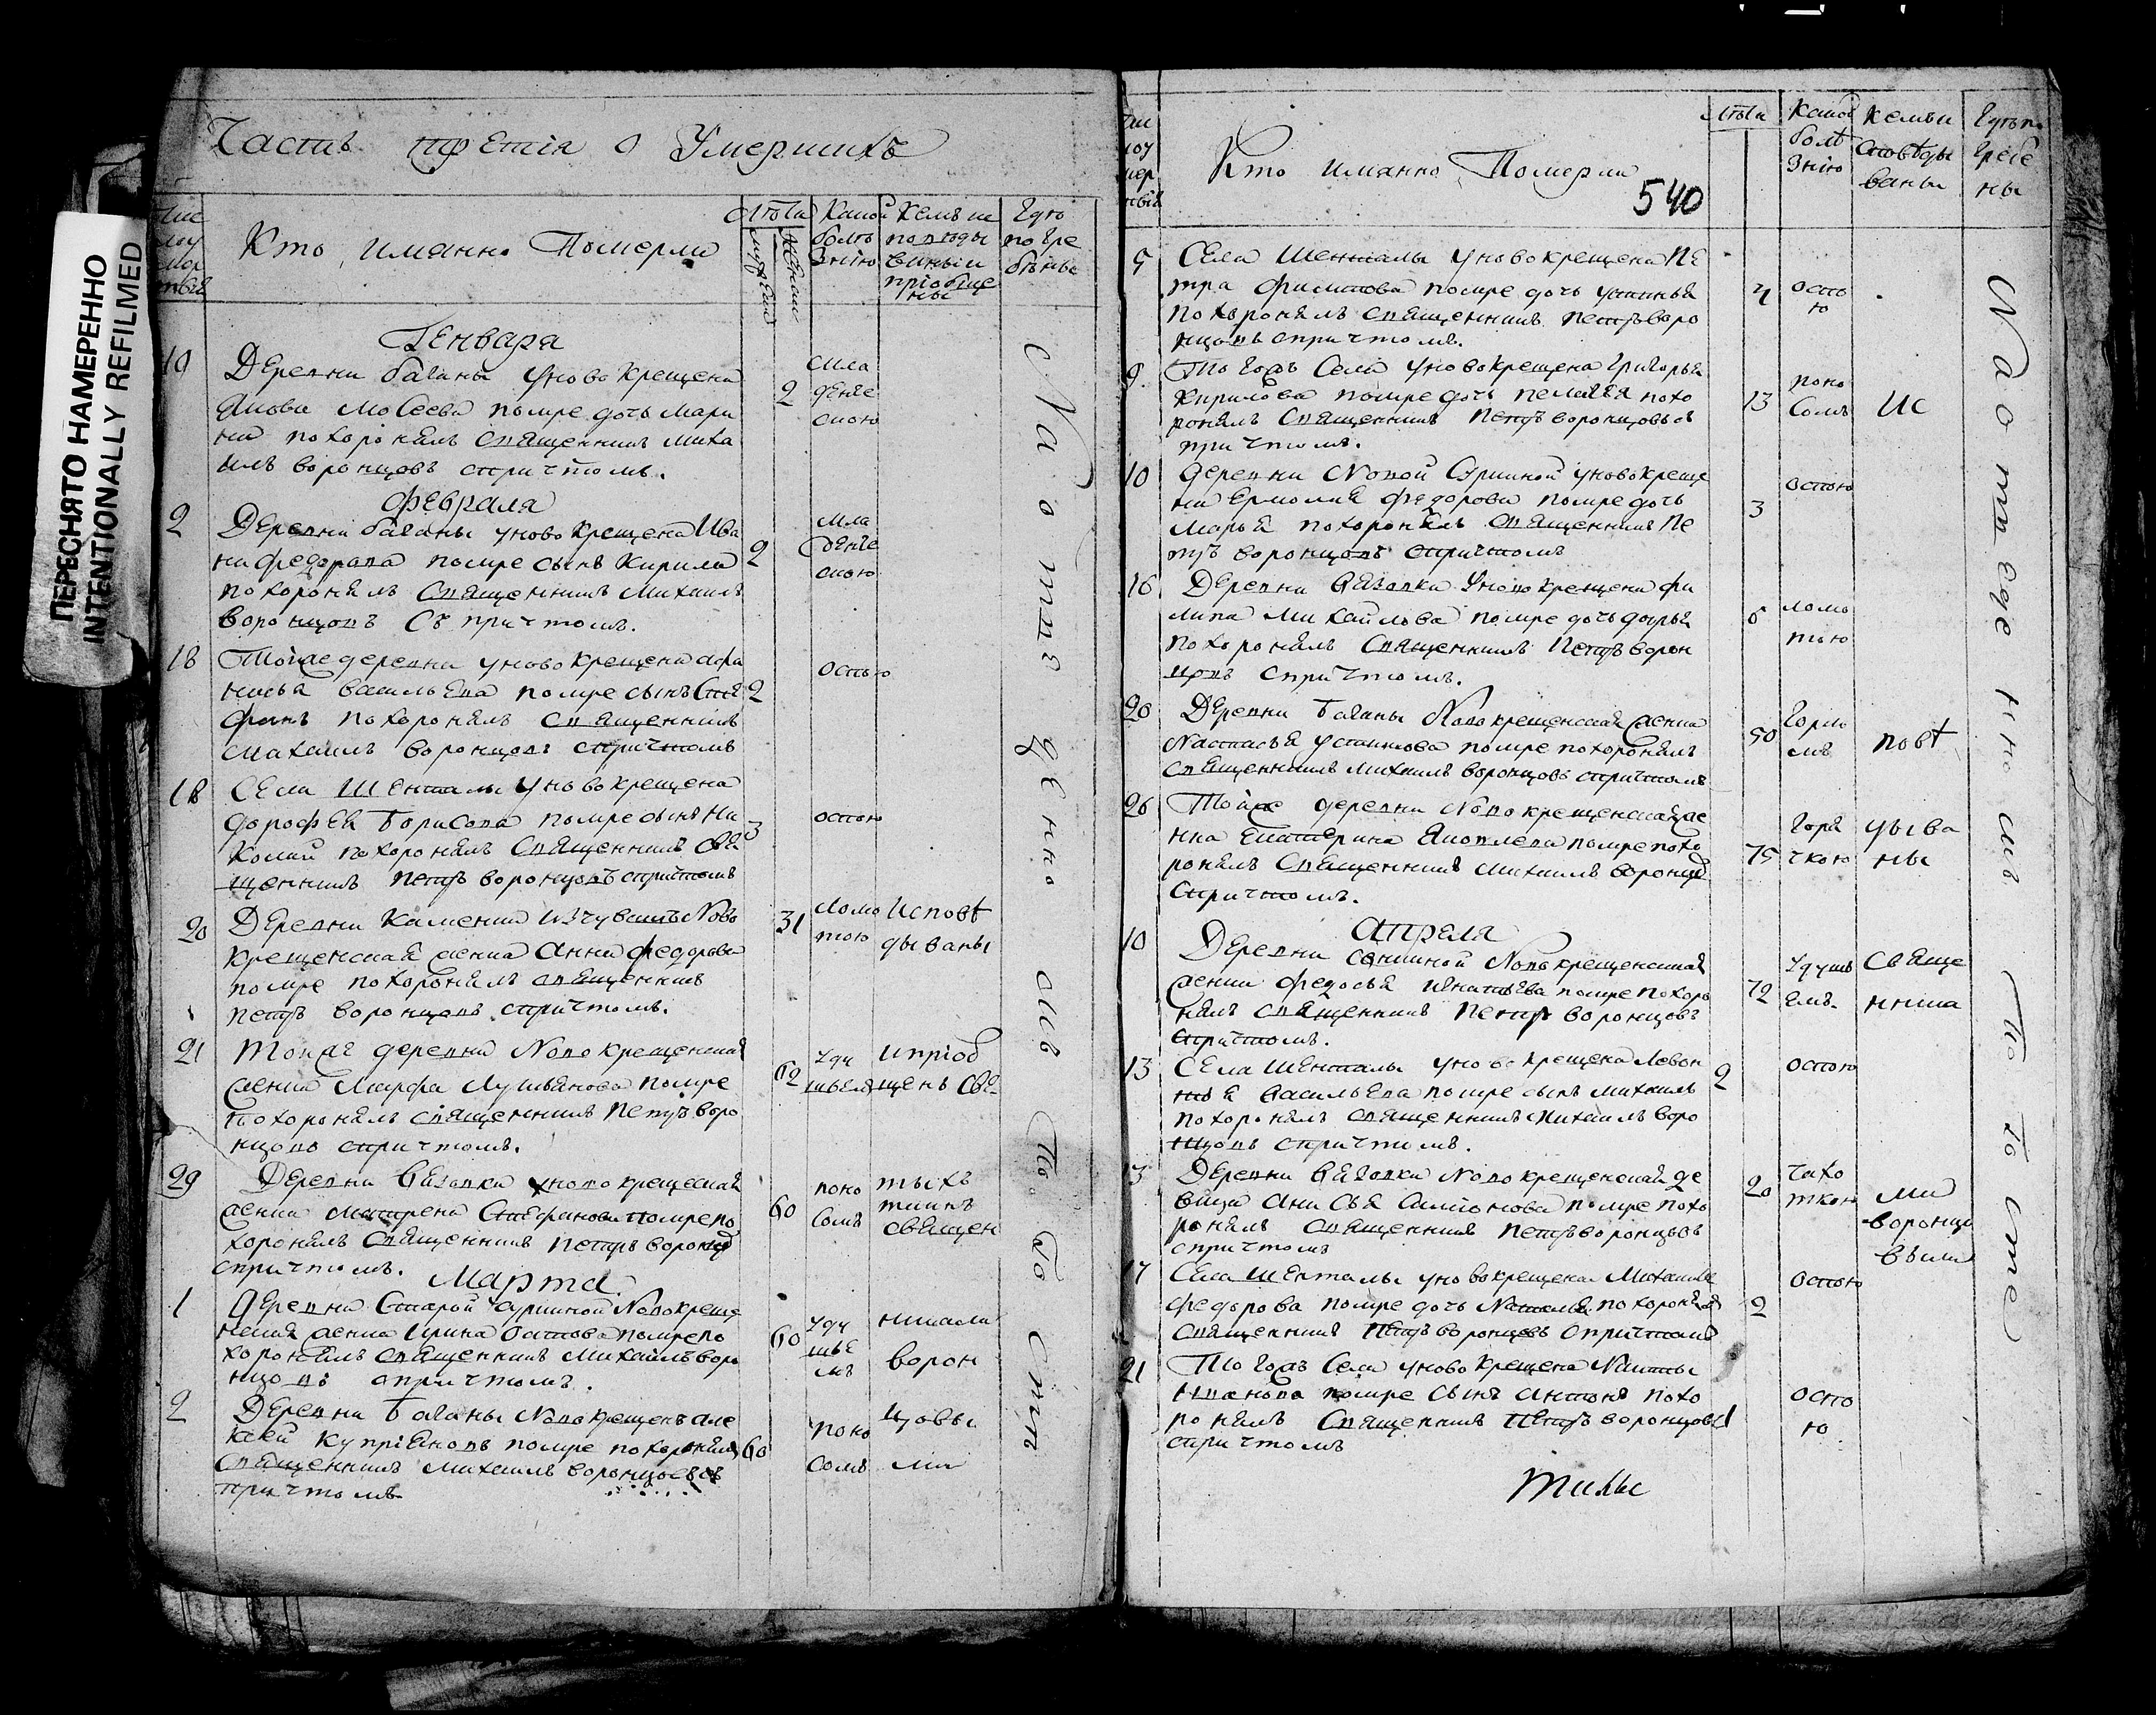 ПЕРЕСНЯТО НАМЕРЕННО
INTENTIONALLY REFILMED
Часть третія о Умершихъ
Кто имянно Померли
Лѣта
мужеска
женска
Какой болѣзнію
Кемъ исповѣдываны и пріобщены
Гдѣ погребены
Генваря
10
Деревни баганы уновокрещена
Якова Мосеева помре дочь Мари
на похоронялъ священникъ Миха
илъ воронцовъ спричтомъ.
2
Мла
денче
скою
Февраля
2
Деревни баганы уновокрещена Ива
на федорова помре сынъ Кирила
похоронялъ Священникъ Михаилъ
воронцовъ Съ причтомъ.
2
Мла
денче
скою
18
Тойже деревни уновокрещена афа
насья васильева помре сынъ Сте
фанъ похоронялъ священникъ
Михаилъ воронцовъ спричтомъ
2
оспою
18
Села Шенталы Уновокрещена
дорофея Борисова помре сынъ Ни
колай похоронялъ Священникъ Свя
щенникъ Петръ воронцовъ спричтомъ
3
оспою
20
Деревни Каменки изчувашъ Ново
крещенская женка Анна федорова
помре похоронялъ священникъ
Петръ воронцовъ спричтомъ.
31
Ломо
тою
Исповѣ
дываны
21
Тояже деревни Новокрещенская
женка Марфа Лукьянова помре
похоронялъ священникъ Петръ воро
нцовъ спричтомъ.
62
Уду
шьемъ
Ипріоб
щенъ Свя
29
Деревни Вязовки уновокрещеская
женка Матрена Стефанова помре по
хоронялъ Священникъ Петръ воронцо
спричтомъ.
60
поно
Сомъ
тыхъ
таинъ
священ
Марта
1
Деревни Старой Суркиной Новокреще
нская женка Ирина Осипова помре по
хоронялъ священникъ Михаилъ воро
нцовъ спричтомъ.
60
Уду
шье
мъ
никами
ворон
2
Деревни Баганы Новокрещенъ але
ксей Купріяновъ помре похоронялъ
Священникъ Михаилъ воронцовъ съ
причтомъ
60
Поно
Сомъ
цовы
ми
На отведенномъ По ГО СТѢ
540
Кто имянно Померли
Лѣта
Какой болѣзнію
Кемъ исповѣдываны
Гдѣ погребены
5
Села Шенталы Уновокрещена Пе
тра филипова помре дочь устинья
похоронялъ священникъ Петръ воро
нцовъ спричтомъ.
4
оспо
ю
9
Того жъ Села Уновокрещена Григорья
Кирилова помре дочь пелагея похо
ронялъ Священникъ Петръ воронцовъ съ
причтомъ.
13
поно
Сомъ
Ис
10
Деревни Новой Суркиной уновокреще
на Ермолая Федорова помре дочь
Марья похоронялъ священникъ Пе
тръ воронцовъ спричтомъ
3
оспою
16
Деревни Вязовки Уновокрещена фи
липа Михайлова помре дочь дарья
похоронялъ священникъ Петръ ворон
цовъ спричтомъ.
ломо
тою
20
Деревни Баганы Новокрещенская женка
Настасья Устинова помре похоронялъ
священникъ Михаилъ воронцовъ спричтомъ
50
Горло
мъ
повѣ
26
Тойже деревни Новокрещенская же
нка Екатерина Яковлева помре похо
ронялъ Священникъ Михаилъ воронцо
спричтомъ.
75
Горя
чкою
дыва
ны
Апреля
10
Деревни Суркиной Новокрещенская
женка федосья Игнатьева помре похоро
нялъ священникъ Петръ воронцовъ
спричтомъ.
72
Удушь
емъ
Свяще
нника
13
Села Шенталы уновокрещена Левон
тья Васильева помре сынъ Михаилъ
похоронялъ священникъ Михаилъ воро
нцовъ спричтомъ.
2
оспою
13
Деревни Вязовки Новокрещенская де
вица Анисья Симіонова помре похо
ронялъ священникъ Петръ воронцовъ
спричтомъ
20
Чахо
ткою
Ми
воронцо
выми
17
Села Шенталы уновокрещена Михаила
Федорова помре дочь Наталья похоронялъ
Священникъ Петръ воронцовъ спричтомъ
2
оспою
21
Того жъ Села уновокрещена Никиты
Иванова помре сынъ Антонъ похо
ронялъ Священникъ Петръ воронцовъ
спричтомъ
1
оспо
ю
На отведенномъ По ГО СТѢ